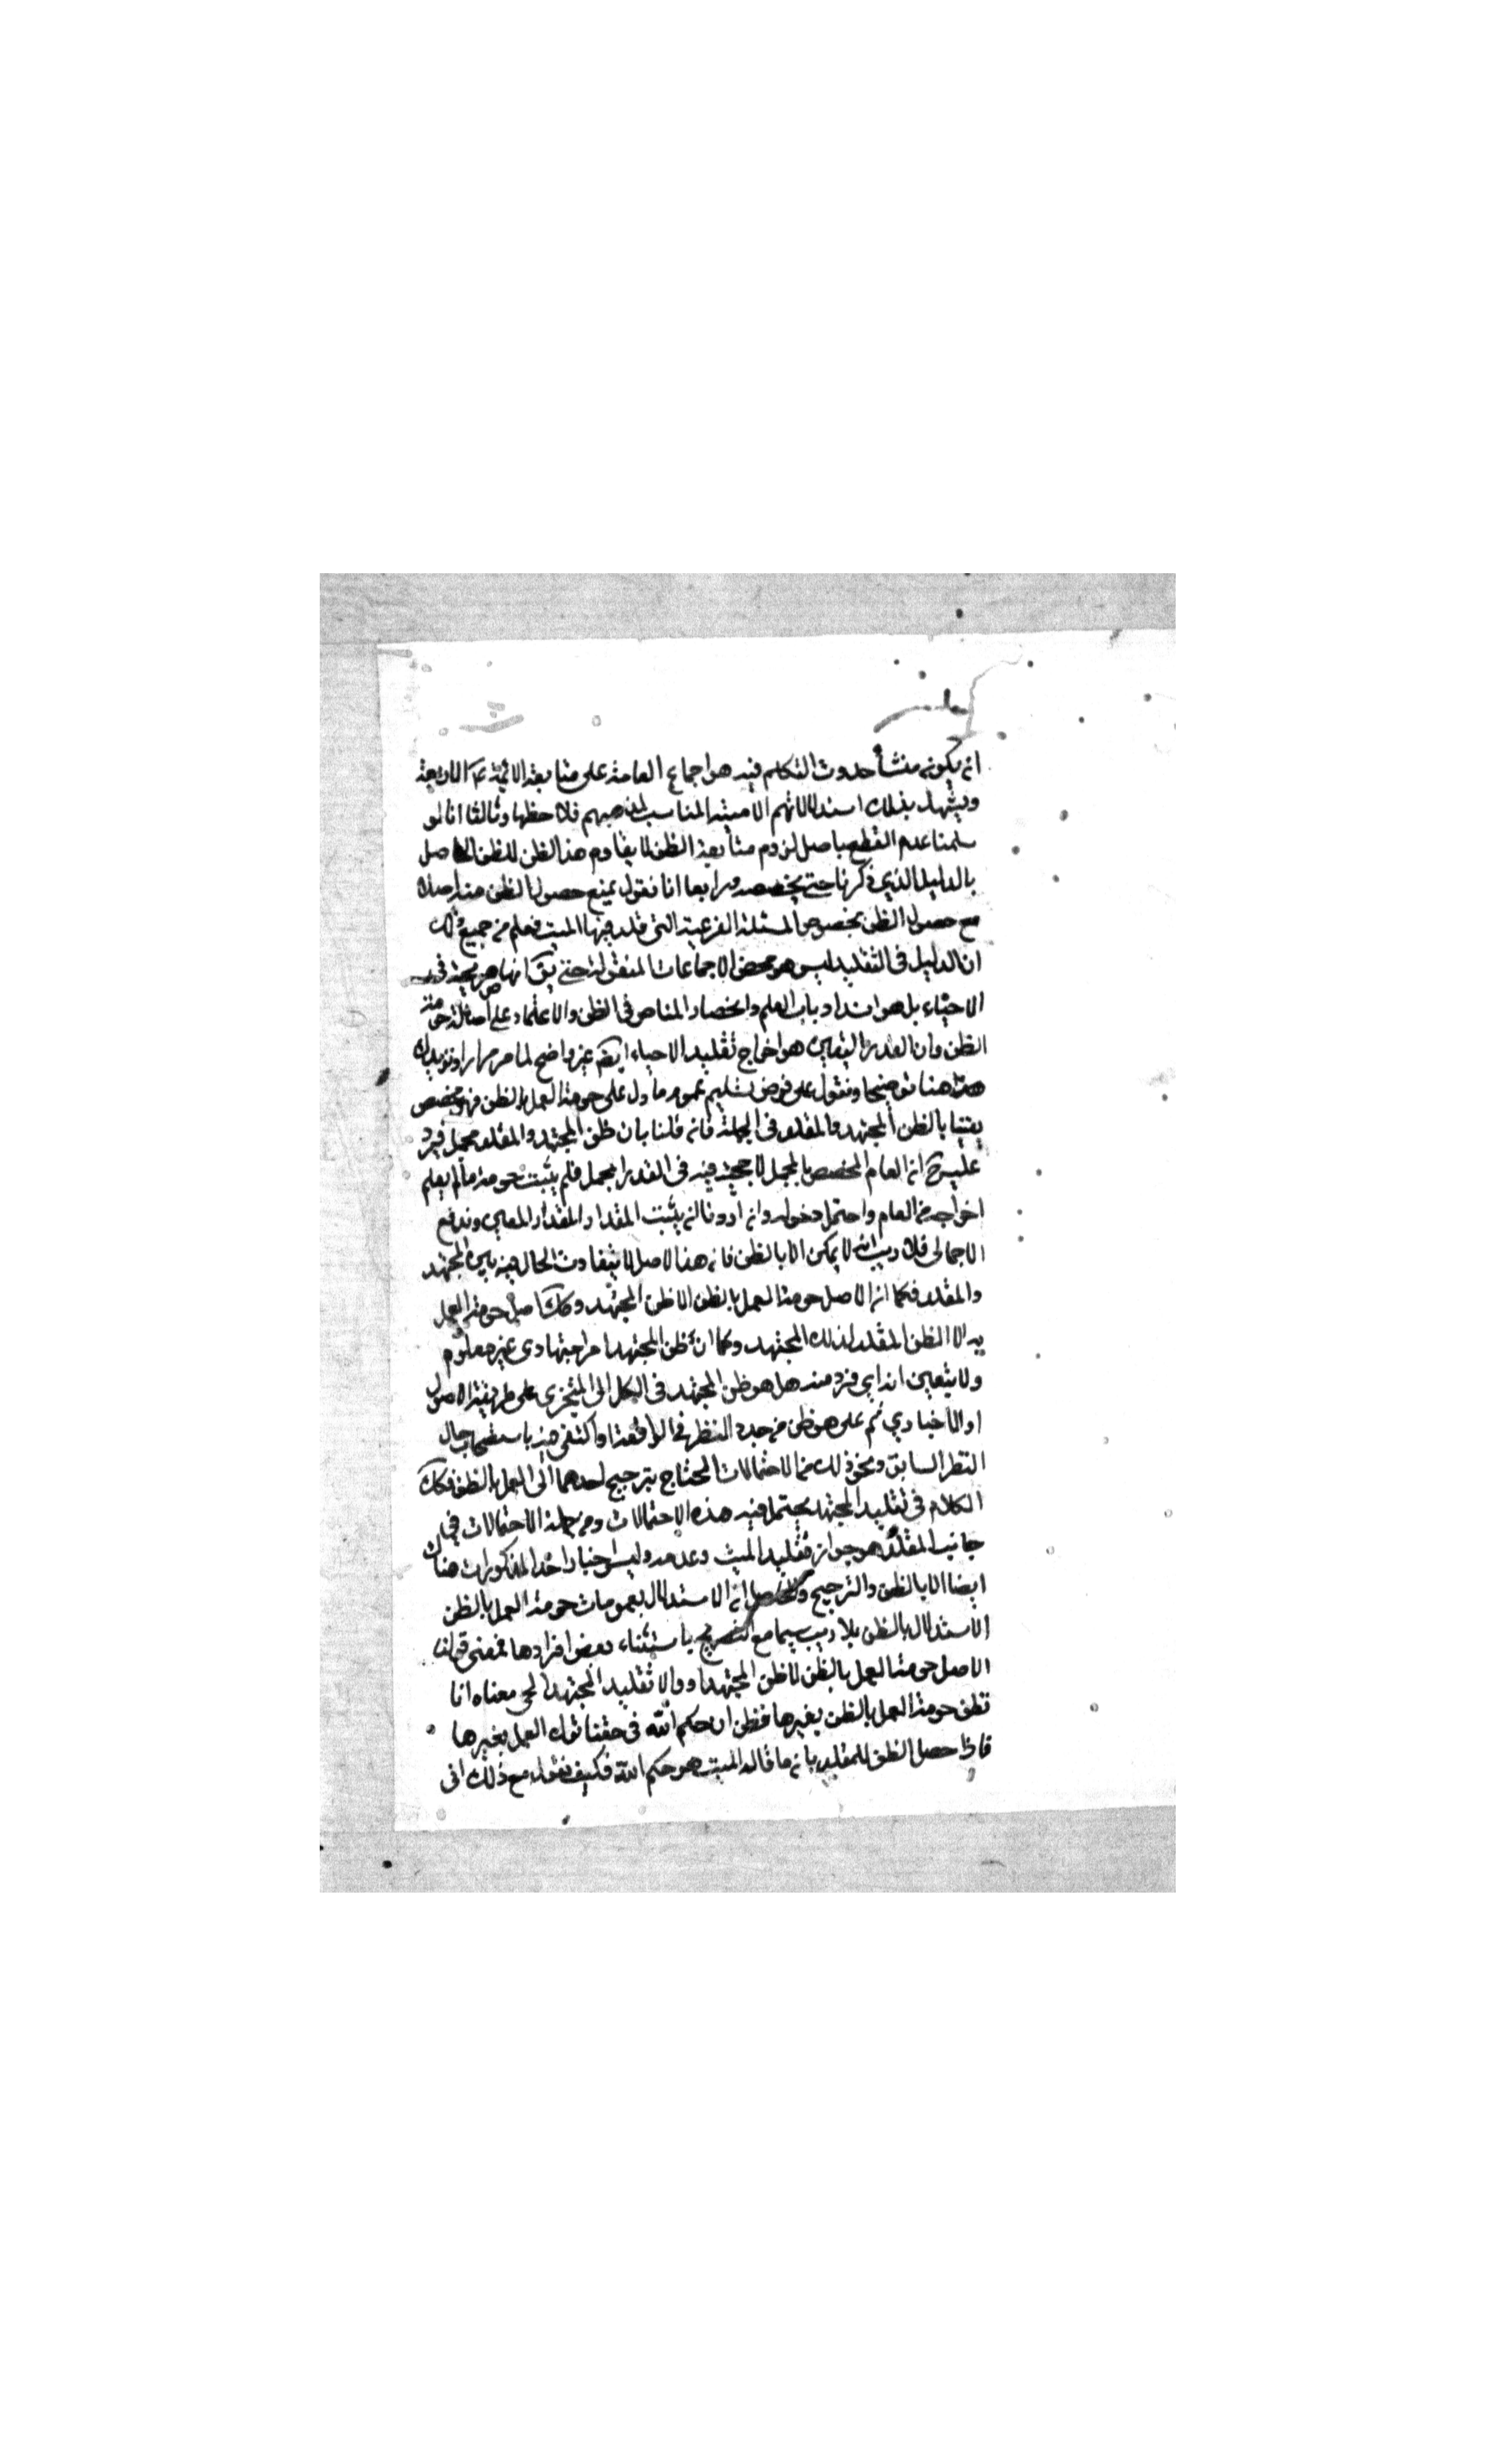 ان يكون منشأ حدوث التكلم فيه هو اجماع العامة على متابعة الائمة الاربعة
ويشهد بذلك استدلالاتهم الآتية المناسب لمذهبهم فلاحظها وثالثا انا لو
سلمنا عدم القطع باصل لزوم متابعة الظن لا يقاوم هذا الظن للظن الحاصل
بالدليل الذي ذكرنا حتى يخصصه ورابعا انا نقول يمنع حصول الظن منه اصلا
مع حصول الظن بخصوص المسئلة الفرعية التي قلد فيها الميت فعلم من جميع ذلك
ان الدليل في التقليد ليس هو محض الاجماعات المنقولة حتى يق انها صريحة في
الاحياء بل هو انسداد باب العلم وانحصار المناص في الظن والاعتماد على اصالة حرمة
الظن وان القدر اليقيني هو اخراج تقليد الاحياء ايضا غير واضح لما مر مرارا ونزيدك
هنا توضيحا ونقول على فرض تسليم عموم ما دل على حرمة العمل بالظن فهو مخصص
بظن المجتهد والمقلد في الجملة فان قلنا بان ظن المجتهد والمقلد مجمل فيرد
عليه ح ان العام المخصص بالمجمل لا حجية فيه في القدر المجمل فلم يثبت حرمة ما لم يعلم
اخراجه من العام واحتمل دخوله وان اردنا ان يثبت المقدار المعين وندفع
الاجمالي فلا ريب انه لا يمكن الا بالظن فان هذا الاصل لا يتفاوت الحال فيه بين المجتهد
والمقلد فكما ان الاصل حرمة العمل بالظن الا ظن المجتهد وكك اصل حرمة العمل
به الا الظن المقلد لذلك المجتهد وكما ان ظن المجتهد امر اجتهادي غير معلوم
ولا يتعين انه اي فرد منه هل هو ظن المجتهد في الكل او المتجزي على طريقة الاصول
او الاخباري ثم على هو ظن من جدد النظر في الواقعة او اكتفى فيه باستصحاب حال
النظر السابق ونحو ذلك من الاحتمالات المحتاج بترجيح احدهما الى العمل بالظن فكك
الكلام في تقليد المجتهد يحتمل فيه هذه الاحتمالات ومن جملة الاحتمالات في
جانب المقلد هو جواز تقليد الميت وعدمه وليس اختيار احد المذكورات هناك
ايضا الا بالظن والترجيح والحاصل ان الاستدلال بعمومات حرمة العمل بالظن
الاستدلال بالظن بلا ريب سيما مع التصريح باستثناء بعض افرادها فمعنى قولنا
الاصل حرمة العمل بالظن الا ظن المجتهد او والا تقليد المجتهد الحي معناه انا
نظن حرمة العمل بالظن بغيرها فنظن ان حكم الله في حقنا ترك العمل بغيرها
فاذا حصل الظن للمقلد بان ما قاله الميت هو حكم الله فكيف نقول مع ذلك اني